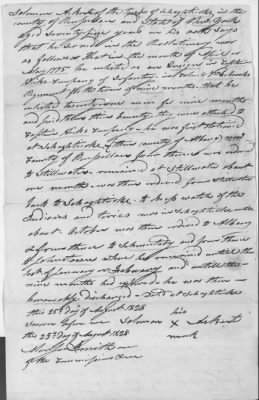 Solomon Acker of the Town of Schaghticoke in the
county of Rensselaer and State of New York
aged Seventy five years on his oath Says
that he Served in the Revolutionary war
as follows that in the month of April or
May 1778 he enlisted as an
Hicks Company of Infantry in
Regiment for the term of nine months, that he
enlisted twenty-one men for nine months
and paid them their bounty, they were attached to
Captain Hicks Company he was first stationed
at Schaghticoke, then county of Albany now
County of Rensselaer from thence was ordered
to Stillwater remained at Stillwater about
one month was then ordered from Stillwater
back to Schaghticoke to keep watch of the
Indians and tories was in Schaghticoke until
about October was then ordered to Albany
& from thence to Schenectady and from thence
to Johnstown where he remained until the
last of January or February and until the
nine months had expired he was then
honourably discharged Dated at Schaghticoke
this 25th day of August 1828
Sworn before me Solomon his X
this 25th day of August 1828 mark
of the Commissioners